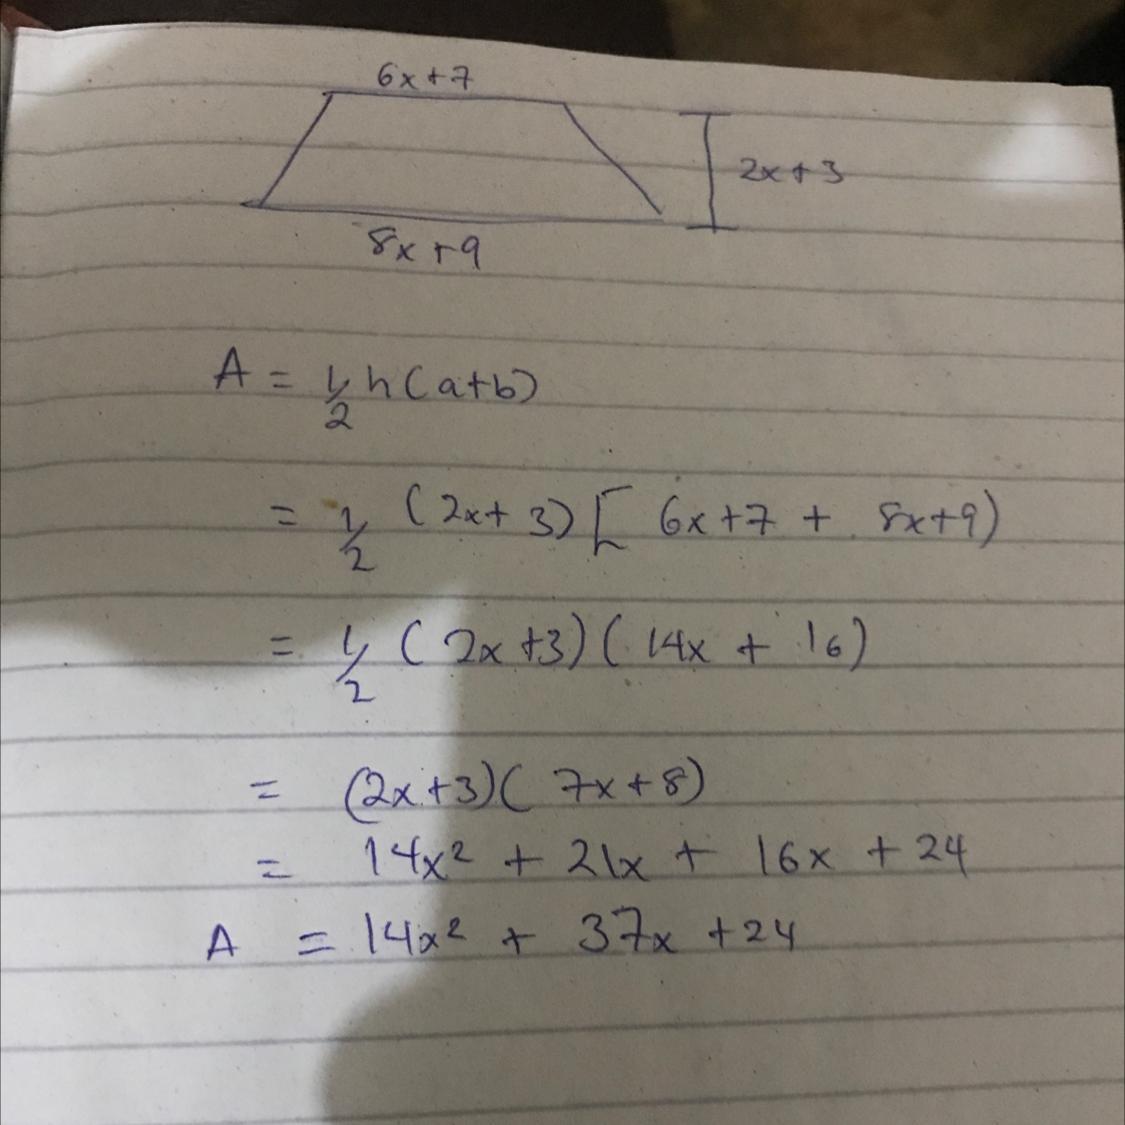 6x+7
2x+3
8x+9
A = 1/2 h(a+b)
= 1/2 (2x+3) [ 6x+7 + 8x+9)
= 1/2 (2x+3)(14x + 16)
= (2x+3)(7x+8)
= 14x² + 21x + 16x + 24
A = 14x² + 37x + 24